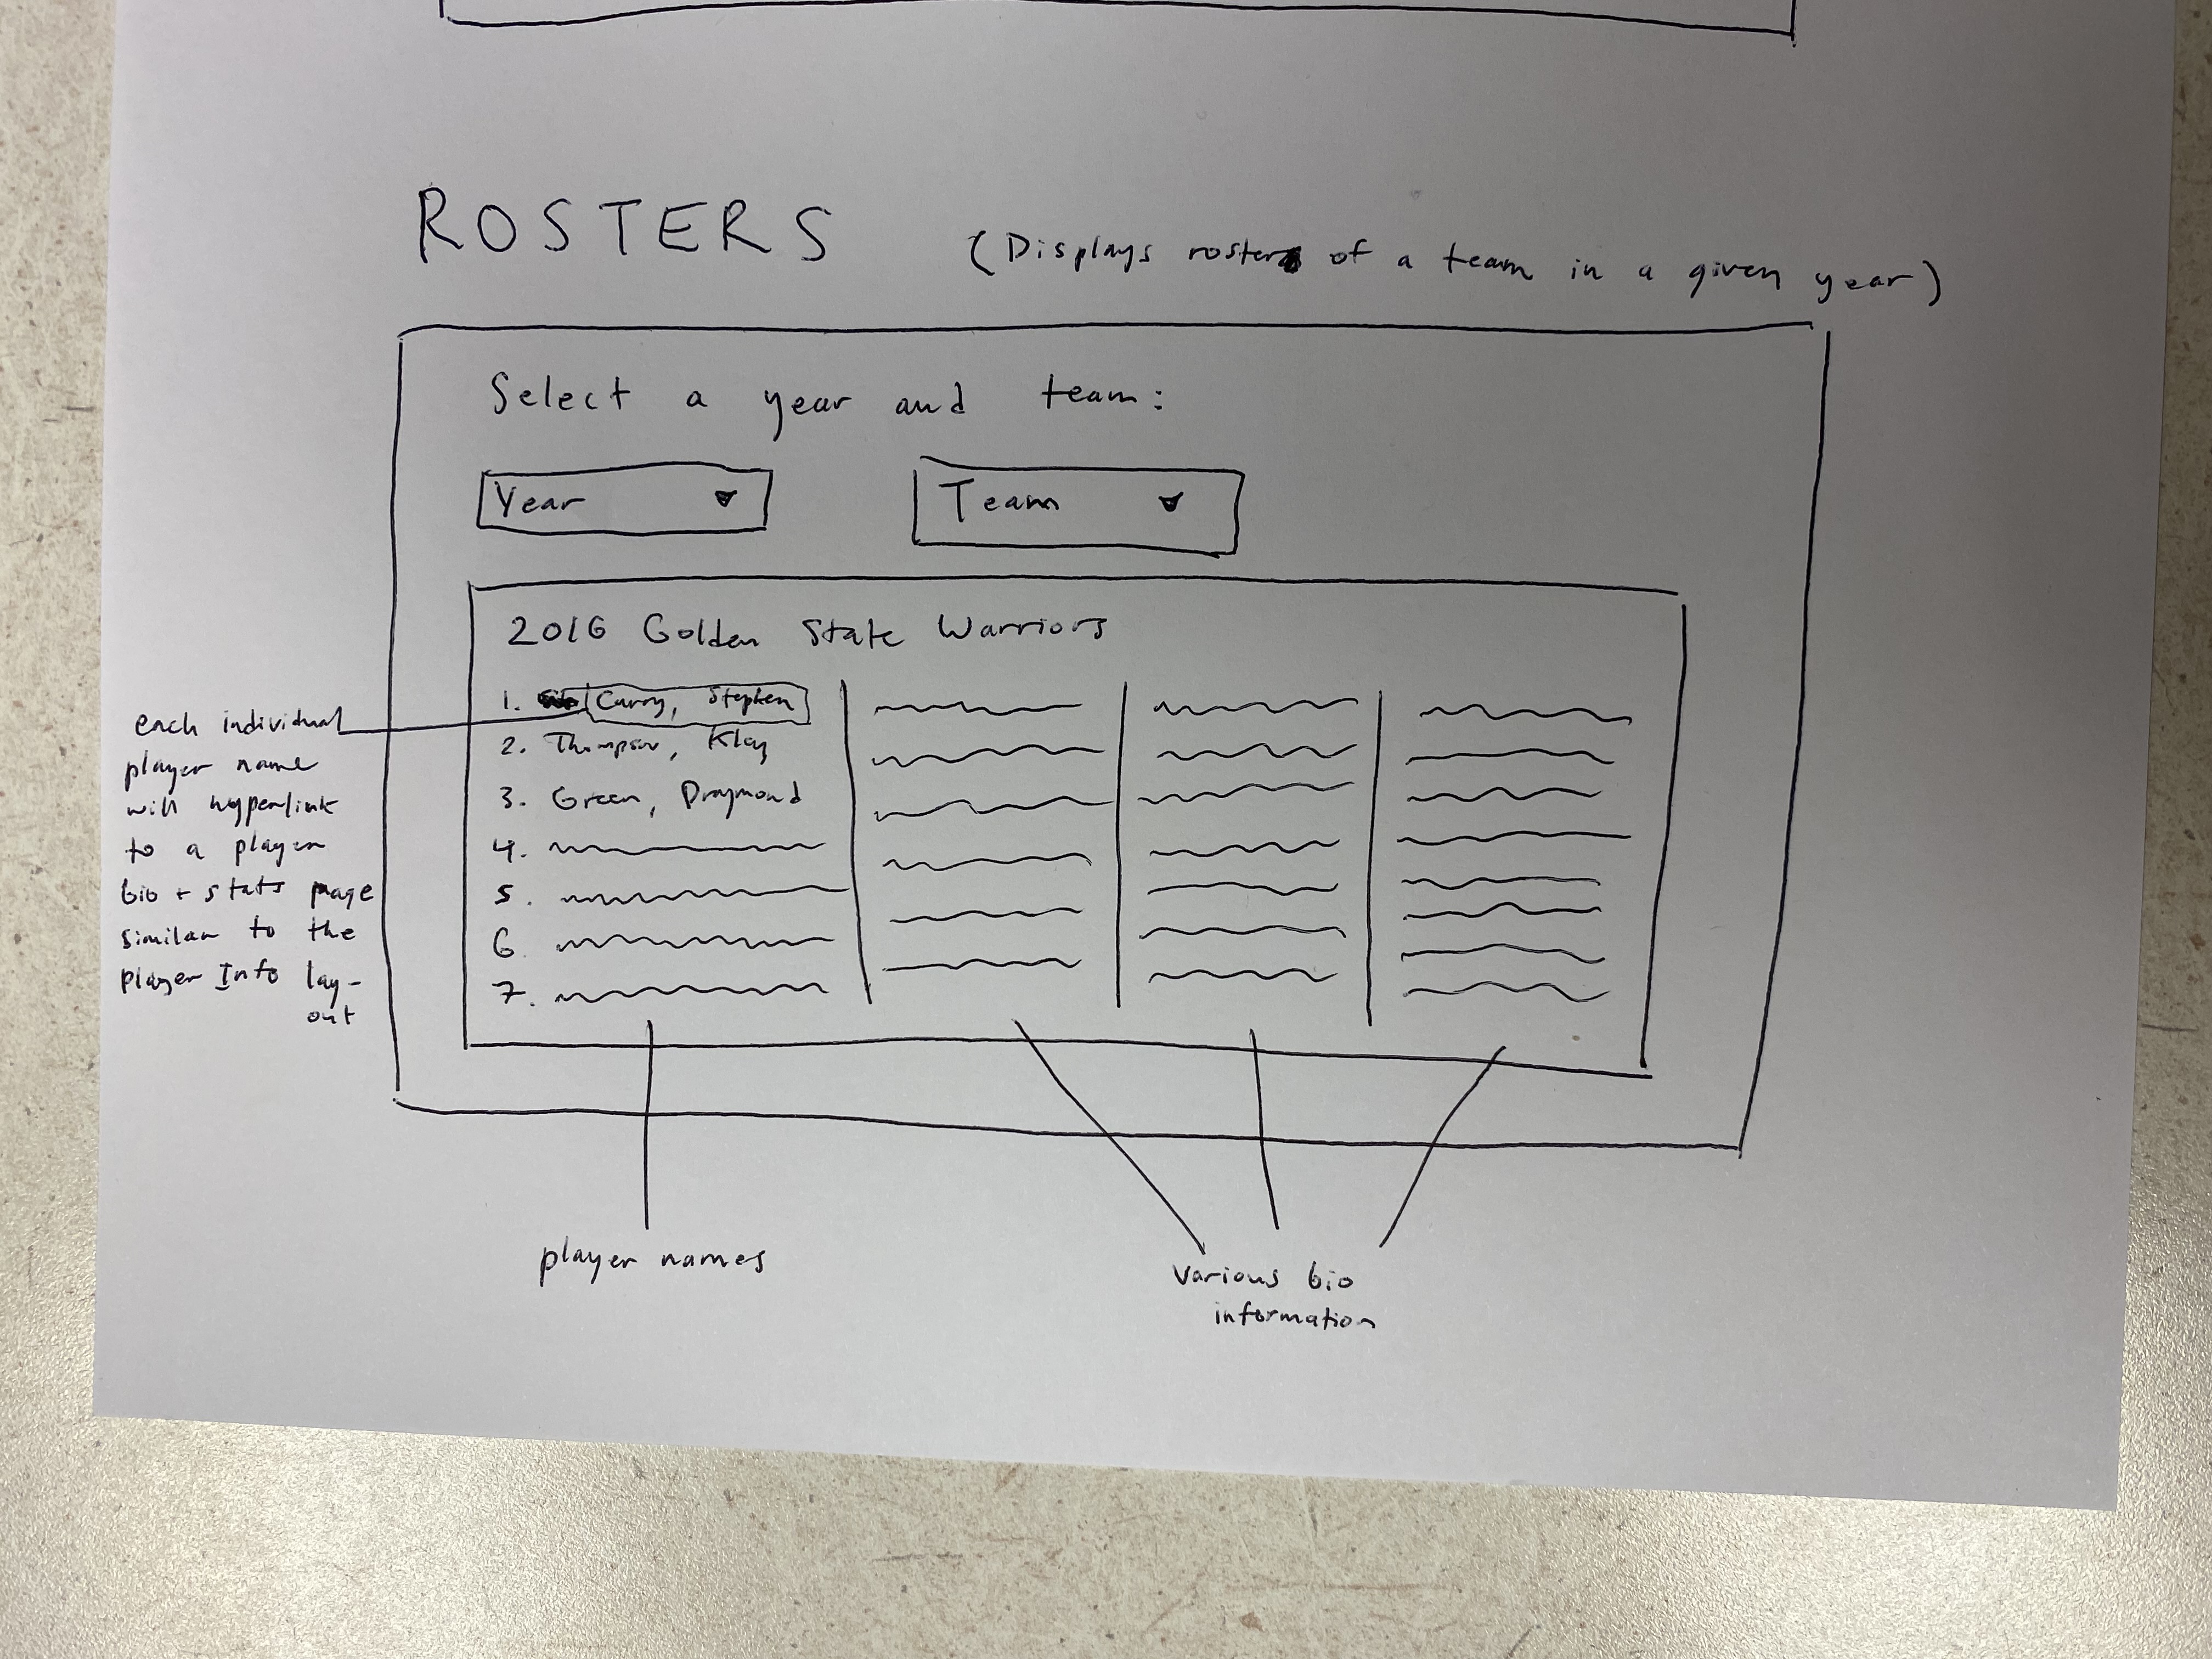 ROSTERS (Displays roster of a team in a given year)
Select a year and team:
Year Team
2016 Golden State Warriors
1. Curry, Stephen
2. Thompson, Klay
3. Green, Draymond
4.
5.
6.
7.
each individual
player name
will hyperlink
to a player
bio + stats page
similar to the
player Info lay-
out
player names
various bio
information